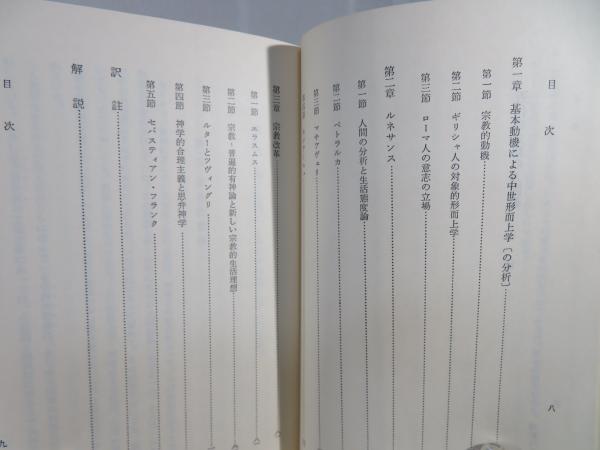 目次
第一章 基本動機による中世形而上学〔の分析〕
第一節 宗教的動機
第二節 ギリシャ人の対象的形而上学
第三節 ローマ人の意志の立場
第二章 ルネサンス
第一節 人間の分析と生活態度論
第二節 ペトラルカ
第三節 マキアヴェリ
八
第三章 宗教改革
第一節 エラスムス
第二節 宗教-普遍的有神論と新しい宗教的生活理想
第三節 ルターとツヴィングリ
第四節 神学的合理主義と思弁神学
第五節 セバスティアン・フランク
訳註
解説
目次
九